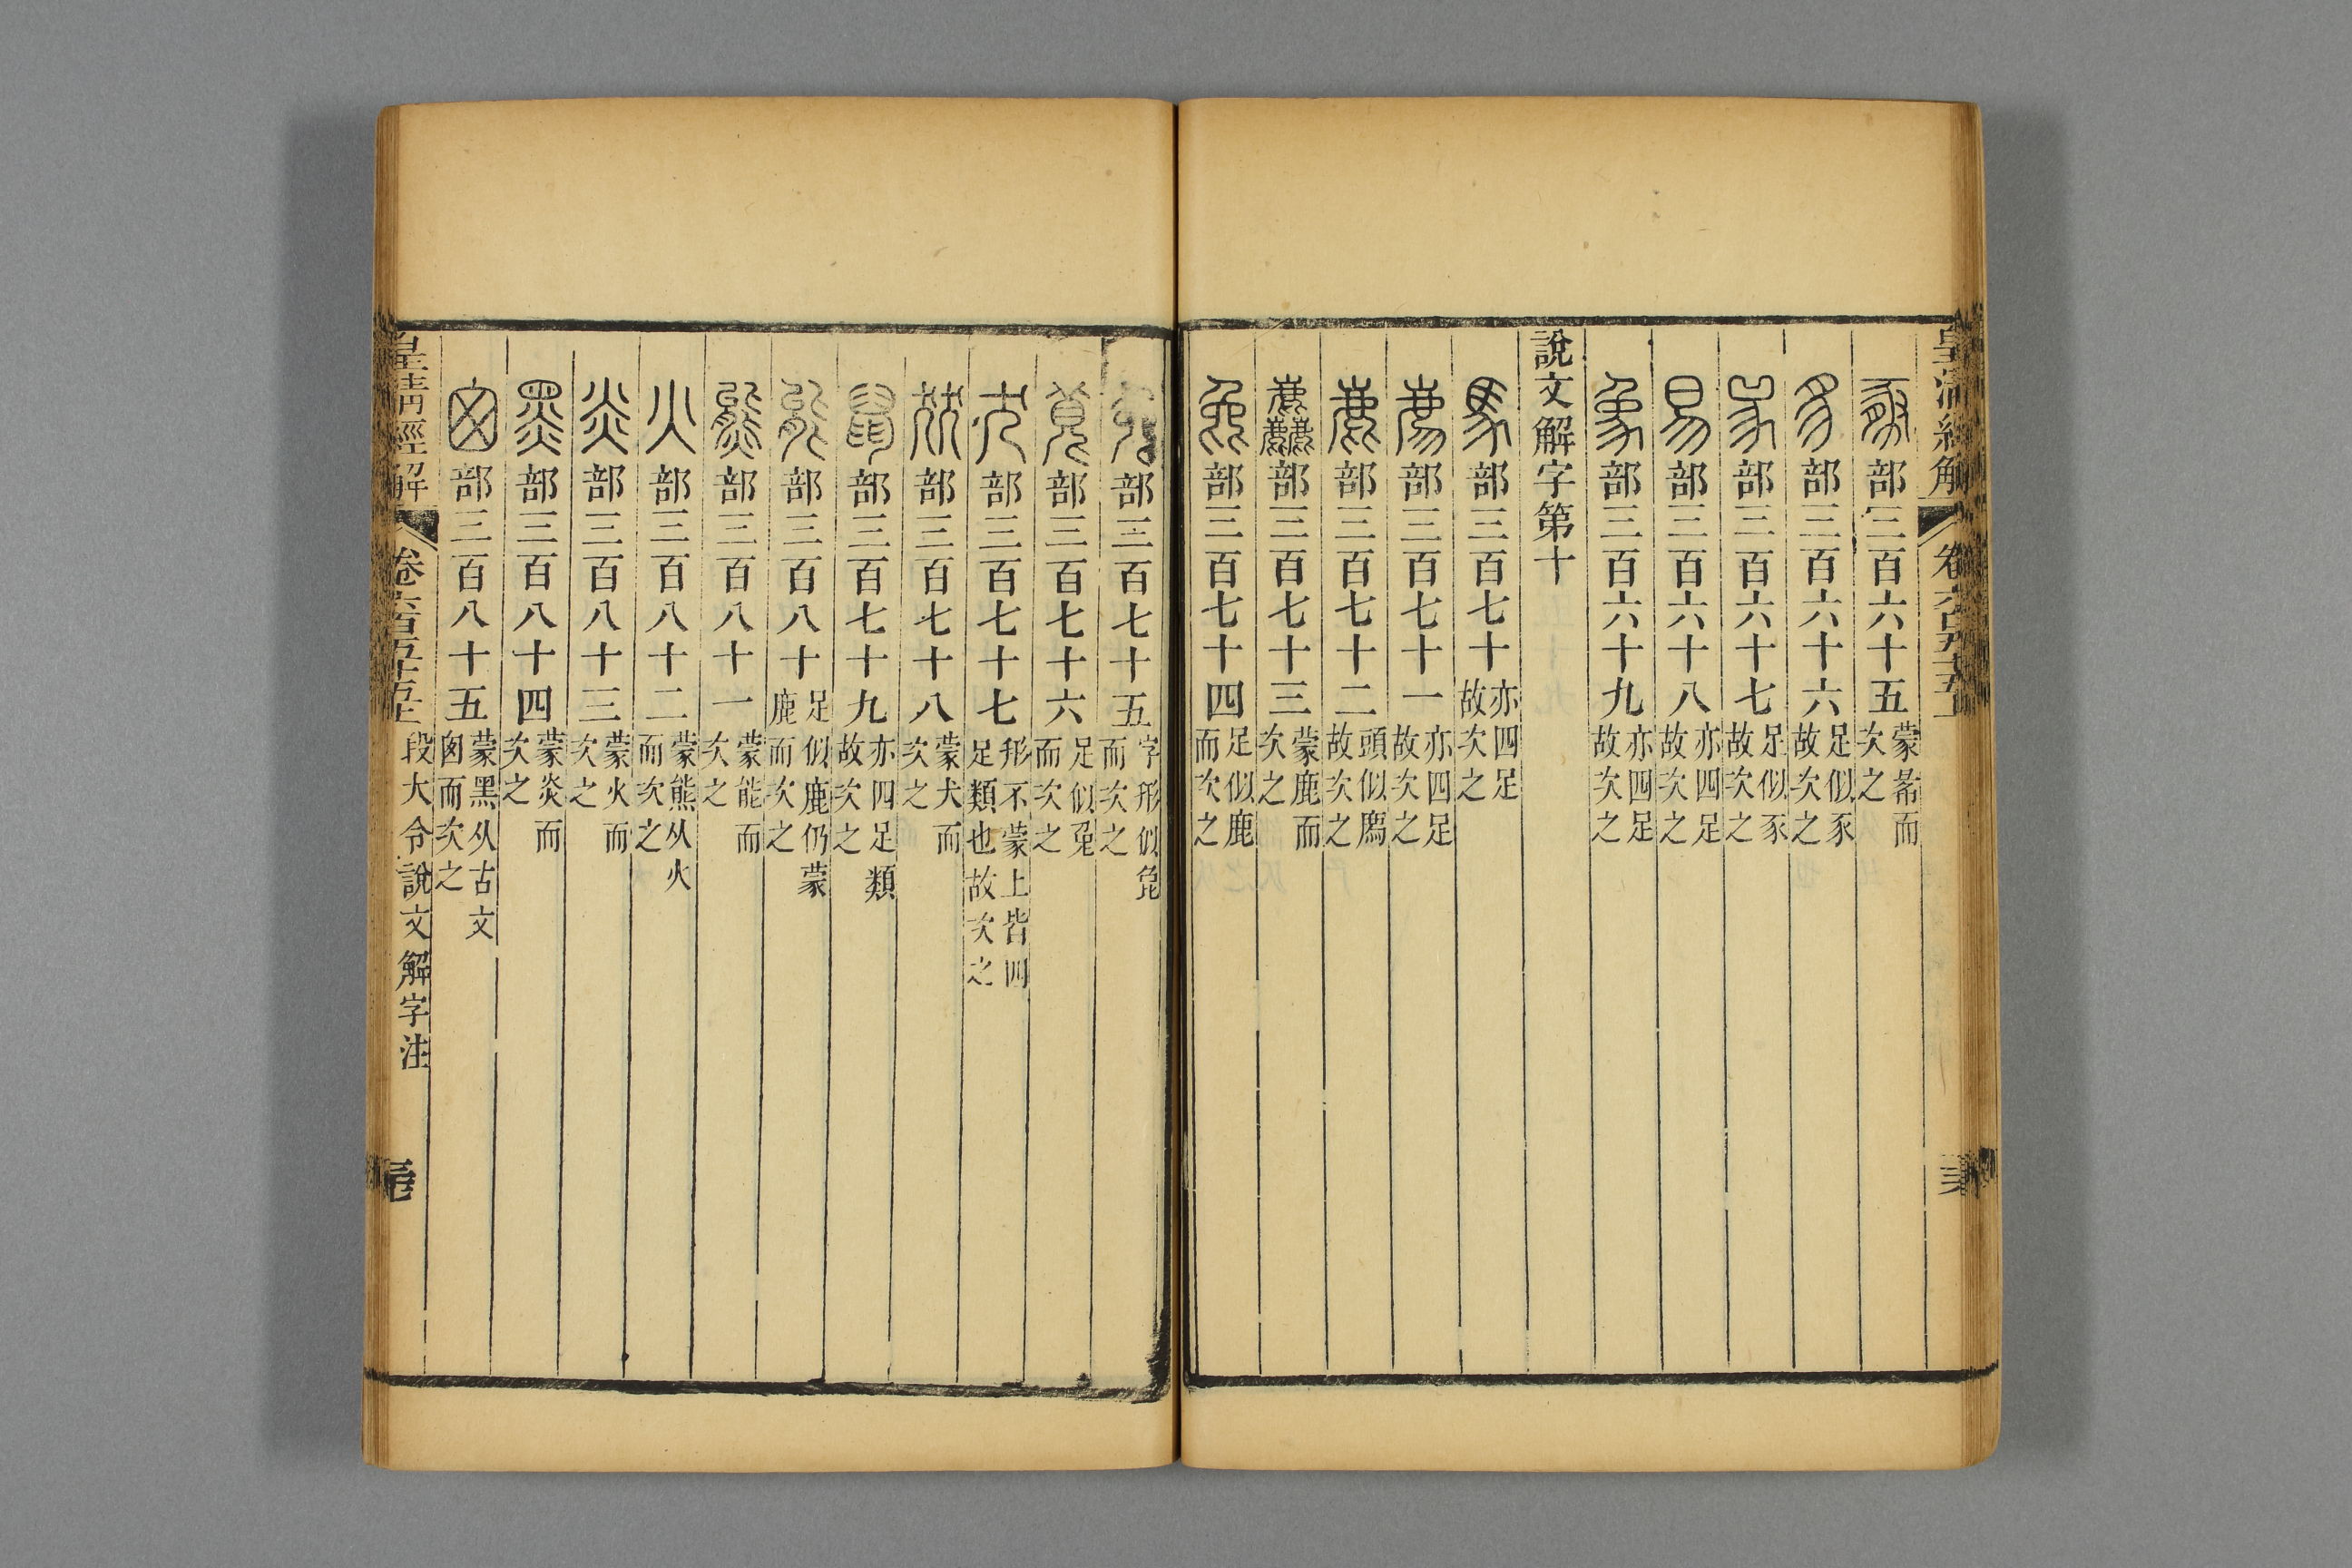 皇清經解 卷六百五十五上
豚部三百六十五 蒙㣇而次之
豸部三百六十六 足似豕故次之
𤉡部三百六十七 足似豕故次之
易部三百六十八 亦四足故次之
象部三百六十九 亦四足故次之
說文解字第十
馬部三百七十 亦四足故次之
廌部三百七十一 亦四足故次之
鹿部三百七十二 頭似廌故次之
麤部三百七十三 蒙鹿而次之
㲋部三百七十四 足似鹿而次之
兔部三百七十五 字形似㲋而次之
萈部三百七十六 足似兔而次之
犬部三百七十七 形不蒙上皆四足類也故次之
㹜部三百七十八 蒙犬而次之
鼠部三百七十九 亦四足類故次之
能部三百八十 足似鹿仍蒙鹿而次之
熊部三百八十一 蒙能而次之
火部三百八十二 蒙熊从火而次之
炎部三百八十三 蒙火而次之
黑部三百八十四 蒙炎而次之
囪部三百八十五 蒙黑从古文囪而次之
皇清經解 卷六百五十五上 段大令說文解字注